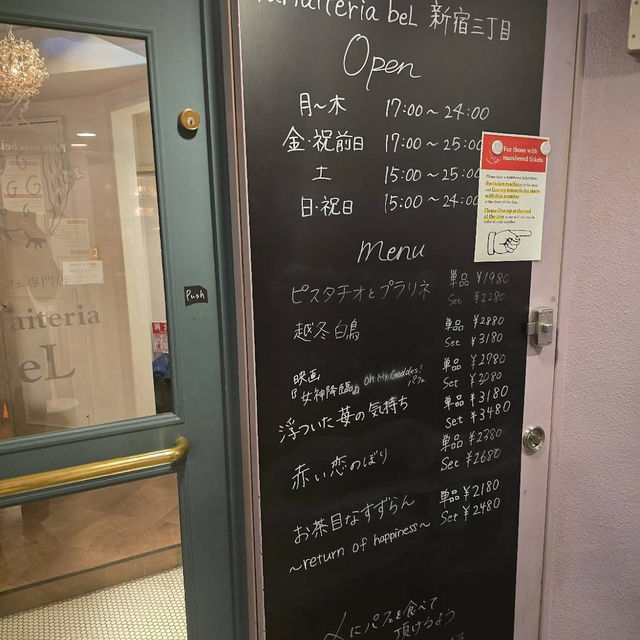 Parfaiteria beL 新宿三丁目
Open
月〜木 17:00〜24:00
金・祝前日 17:00〜25:00
土 15:00〜25:00
日・祝日 15:00〜24:00
For those with
numbered tickets
the ticket machine
Push
menu
ピスタチオとプラリネ 単品 ¥1980
Set ¥2280
越冬白鳥 単品 ¥2880
Set ¥3180
映画
『女神降臨』 Oh My Goddes!
パフェ
単品 ¥2780
Set ¥3080
浮ついた苺の気持ち 単品 ¥3180
Set ¥3480
赤い恋のぼり 単品 ¥2380
Set ¥2680
お茶目なすずらん 単品 ¥2180
〜return of happiness〜 Set ¥2480
パフェを食べて
頂けるよう
faiteria
beL